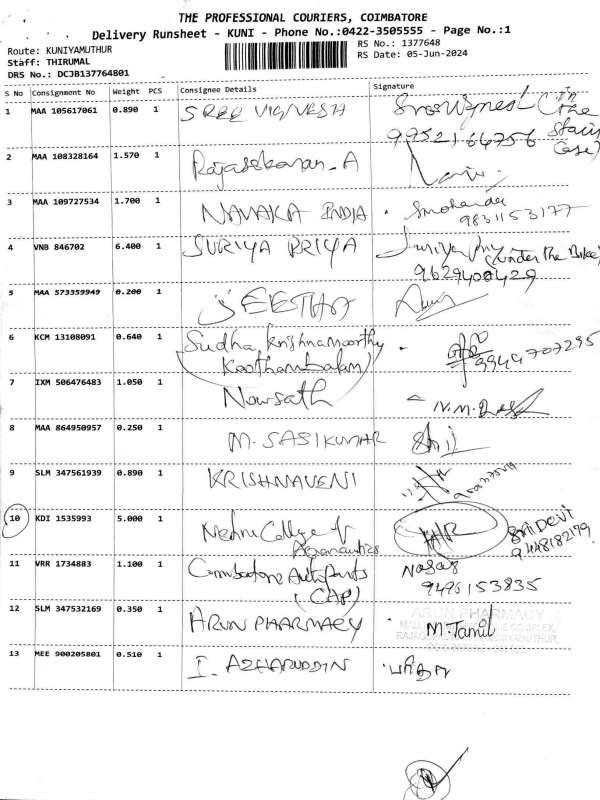 THE PROFESSIONAL COURIERS, COIMBATORE
Delivery Runsheet - KUNI - Phone No.:0422-3505555 - Page No.:1
Route: KUNIYAMUTHUR
RS No.: 1377648
Staff: THIRUMAL
RS Date: 05-Jun-2024
DRS No.: DCJB137764801
S No Consignment No Weight PCS Consignee Details Signature
1 MAA 105617061 0.890 1 SREE VIGNESH (In The Stair Case)
9952166756
2 MAA 108328164 1.570 1 Rajasekaran. A
3 MAA 109727534 1.700 1 NAVAKA INDIA
9831153177
4 VNB 846702 6.400 1 SURIYA PRIYA (Under The Bike)
9629400429
5 MAA 573359949 0.200 1 SEETHA
6 KCM 13108091 0.640 1 Sudha krishnamoorthy
(Koothambalam) 9944707295
7 IXM 506476483 1.050 1 Nowsath N.M.
8 MAA 864950957 0.250 1 M. SASIKUMAR
9 SLM 347561939 0.890 1 KRISHNAVENI
10 KDI 1535993 5.000 1 Nehru College of SRIDEVI
Aeronautics 9448182179
11 VRR 1734883 1.100 1 Coimbatore Auto Parts
(CAP) 9496153835
12 SLM 347532169 0.350 1 ARUN PHARMACY M. Tamil
ARUN PHARMACY
13 MEE 900205801 0.510 1 I. AZHARUDDIN